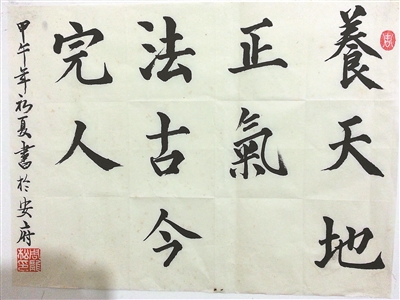 養天地
正氣
法古今
完人
甲午年初夏書於安府